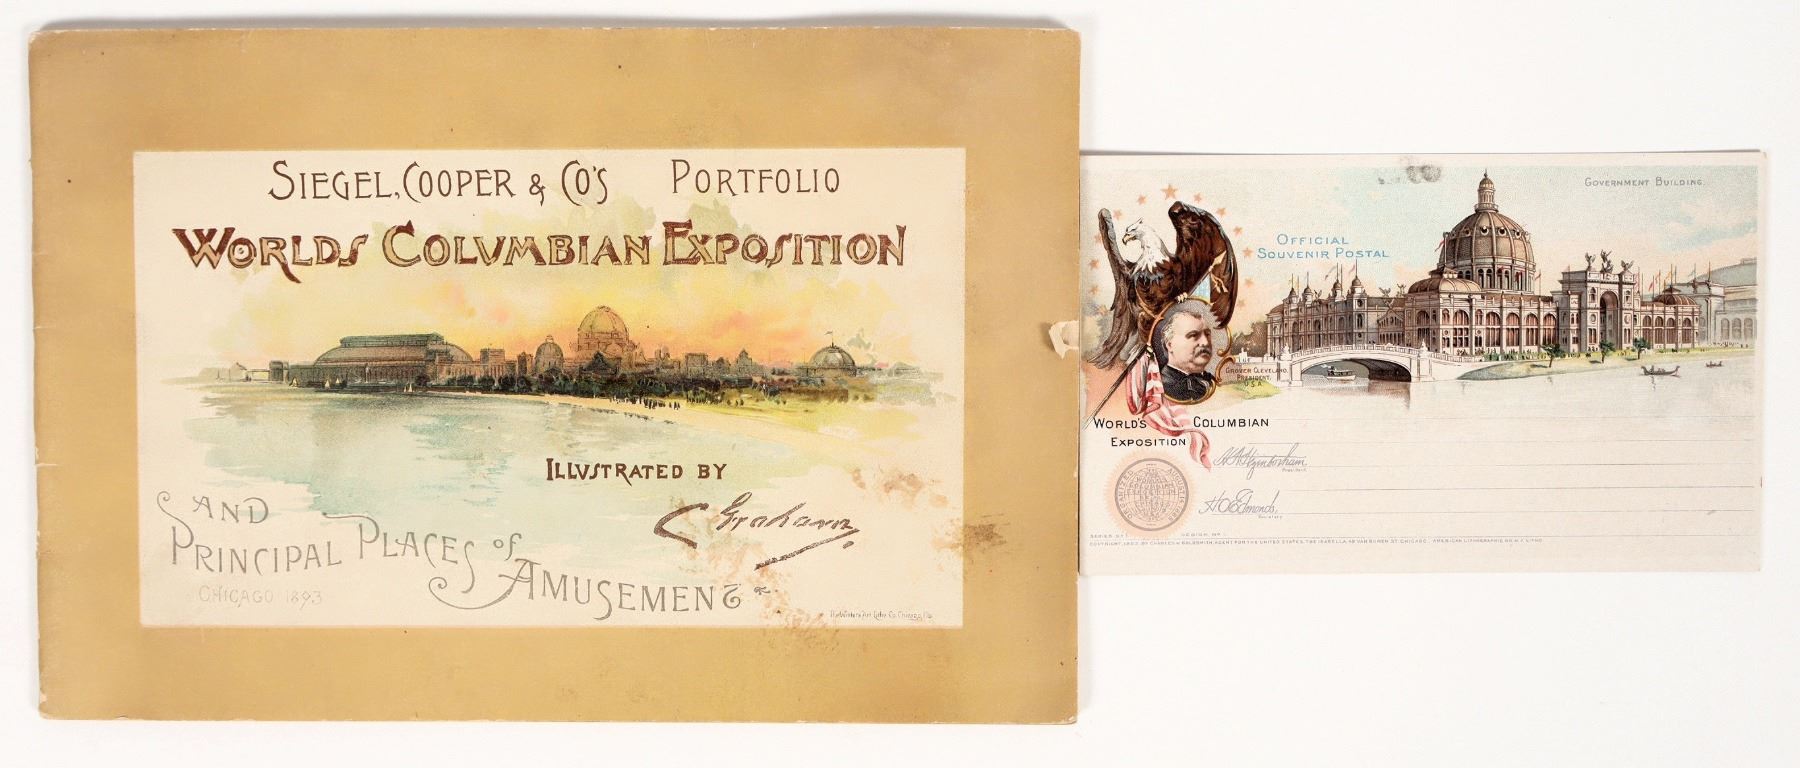 SIEGEL, COOPER & CO'S PORTFOLIO
WORLDS COLVMBIAN EXPOSITION
ILLVSTRATED BY
C Graham
AND
PRINCIPAL PLACES of AMUSEMENT
CHICAGO 1893
The Winters Art Litho Co. Chicago, Ills
GOVERNMENT BUILDING.
OFFICIAL
SOUVENIR POSTAL
GROVER CLEVELAND,
PRESIDENT,
U.S.A.
WORLD'S COLUMBIAN
EXPOSITION
H. N. Higinbotham
President.
H. O. Edmonds,
Secretary
ORGANIZED AUGUST
WORLD'S COLUMBIAN
SERIES Nº 1. DESIGN, Nº 1.
COPYRIGHT, 1893, BY CHARLES W. GOLDSMITH, AGENT FOR THE UNITED STATES, THE ISABELLA, 48 VAN BUREN ST. CHICAGO. AMERICAN LITHOGRAPHIC CO. N.Y. LITHO.